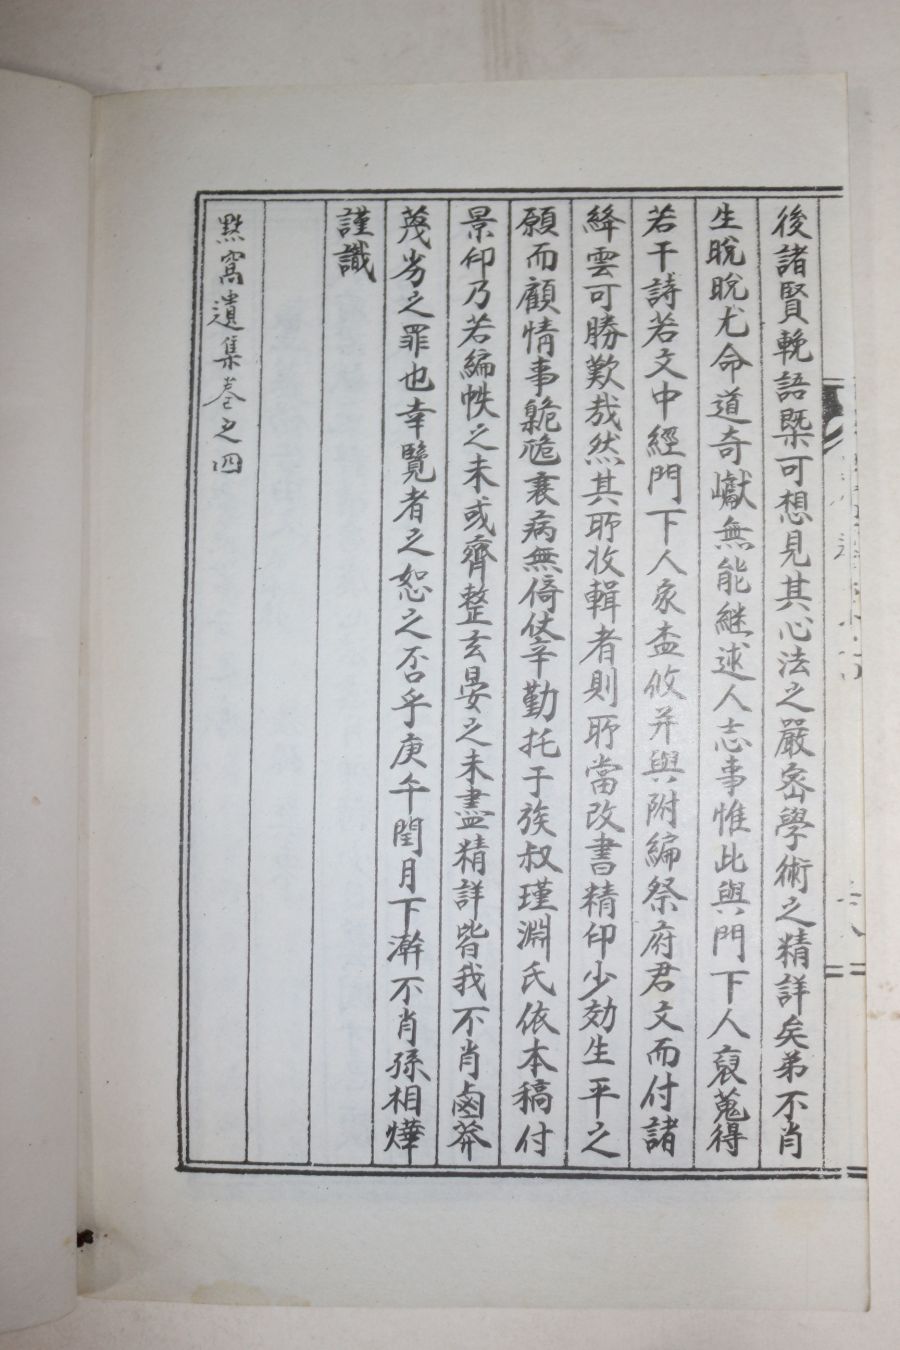 後諸賢輓語槩可想見其心法之嚴密學術之精詳矣弟不肖
生晼晩尤命道奇巘無能継述人志事惟此與門下人裒蒐得
若干詩若文中經門下人家盍攸并與附編祭府君文而付諸
絳雲可勝歎哉然其所收輯者則所當改書精印少効生平之
願而顧情事臲卼衰病無倚仗辛勤托于族叔瑾淵氏依本稿付
景印乃若編帙之未或齊整玄晏之未盡精詳皆我不肖鹵莽
蔑劣之罪也幸覽者之恕之否乎庚午閏月下澣不肖孫相燁
謹識
點窩遺集卷之四